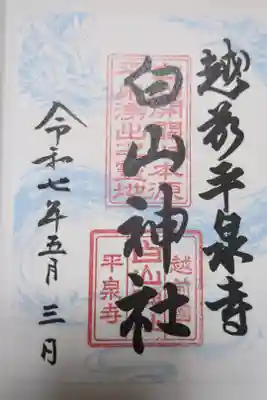 越前平泉寺
白山神社
令和七年五月三日
越前國
平泉寺